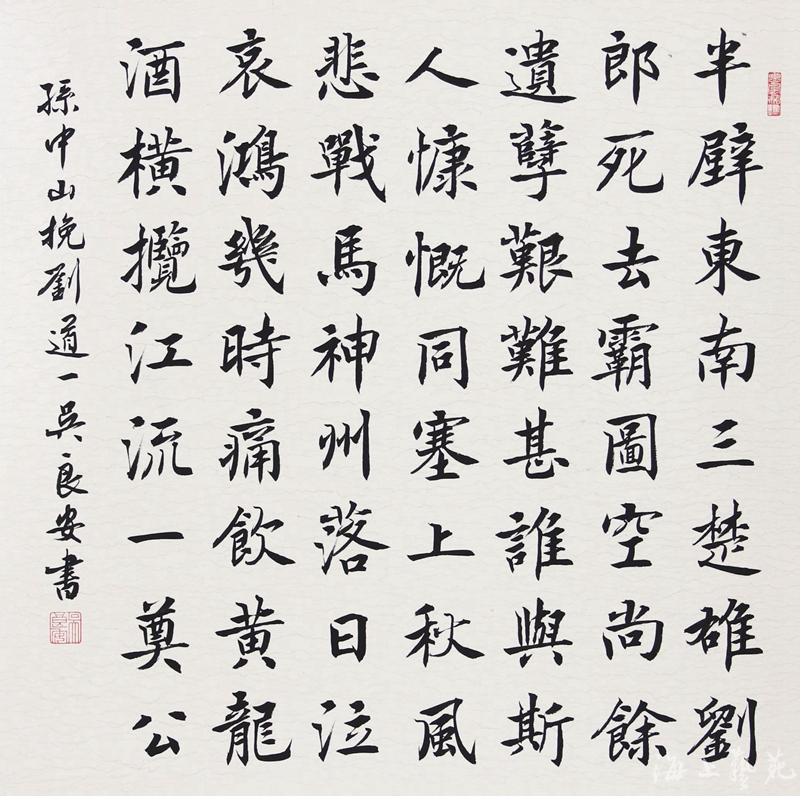 半壁東南三楚雄劉
郎死去霸圖空尚餘
遺孽艱難甚誰與斯
人慷慨同塞上秋風
悲戰馬神州落日泣
哀鴻幾時痛飲黃龍
酒橫攬江流一奠公
孫中山挽劉道一吳良安書
海上藝苑